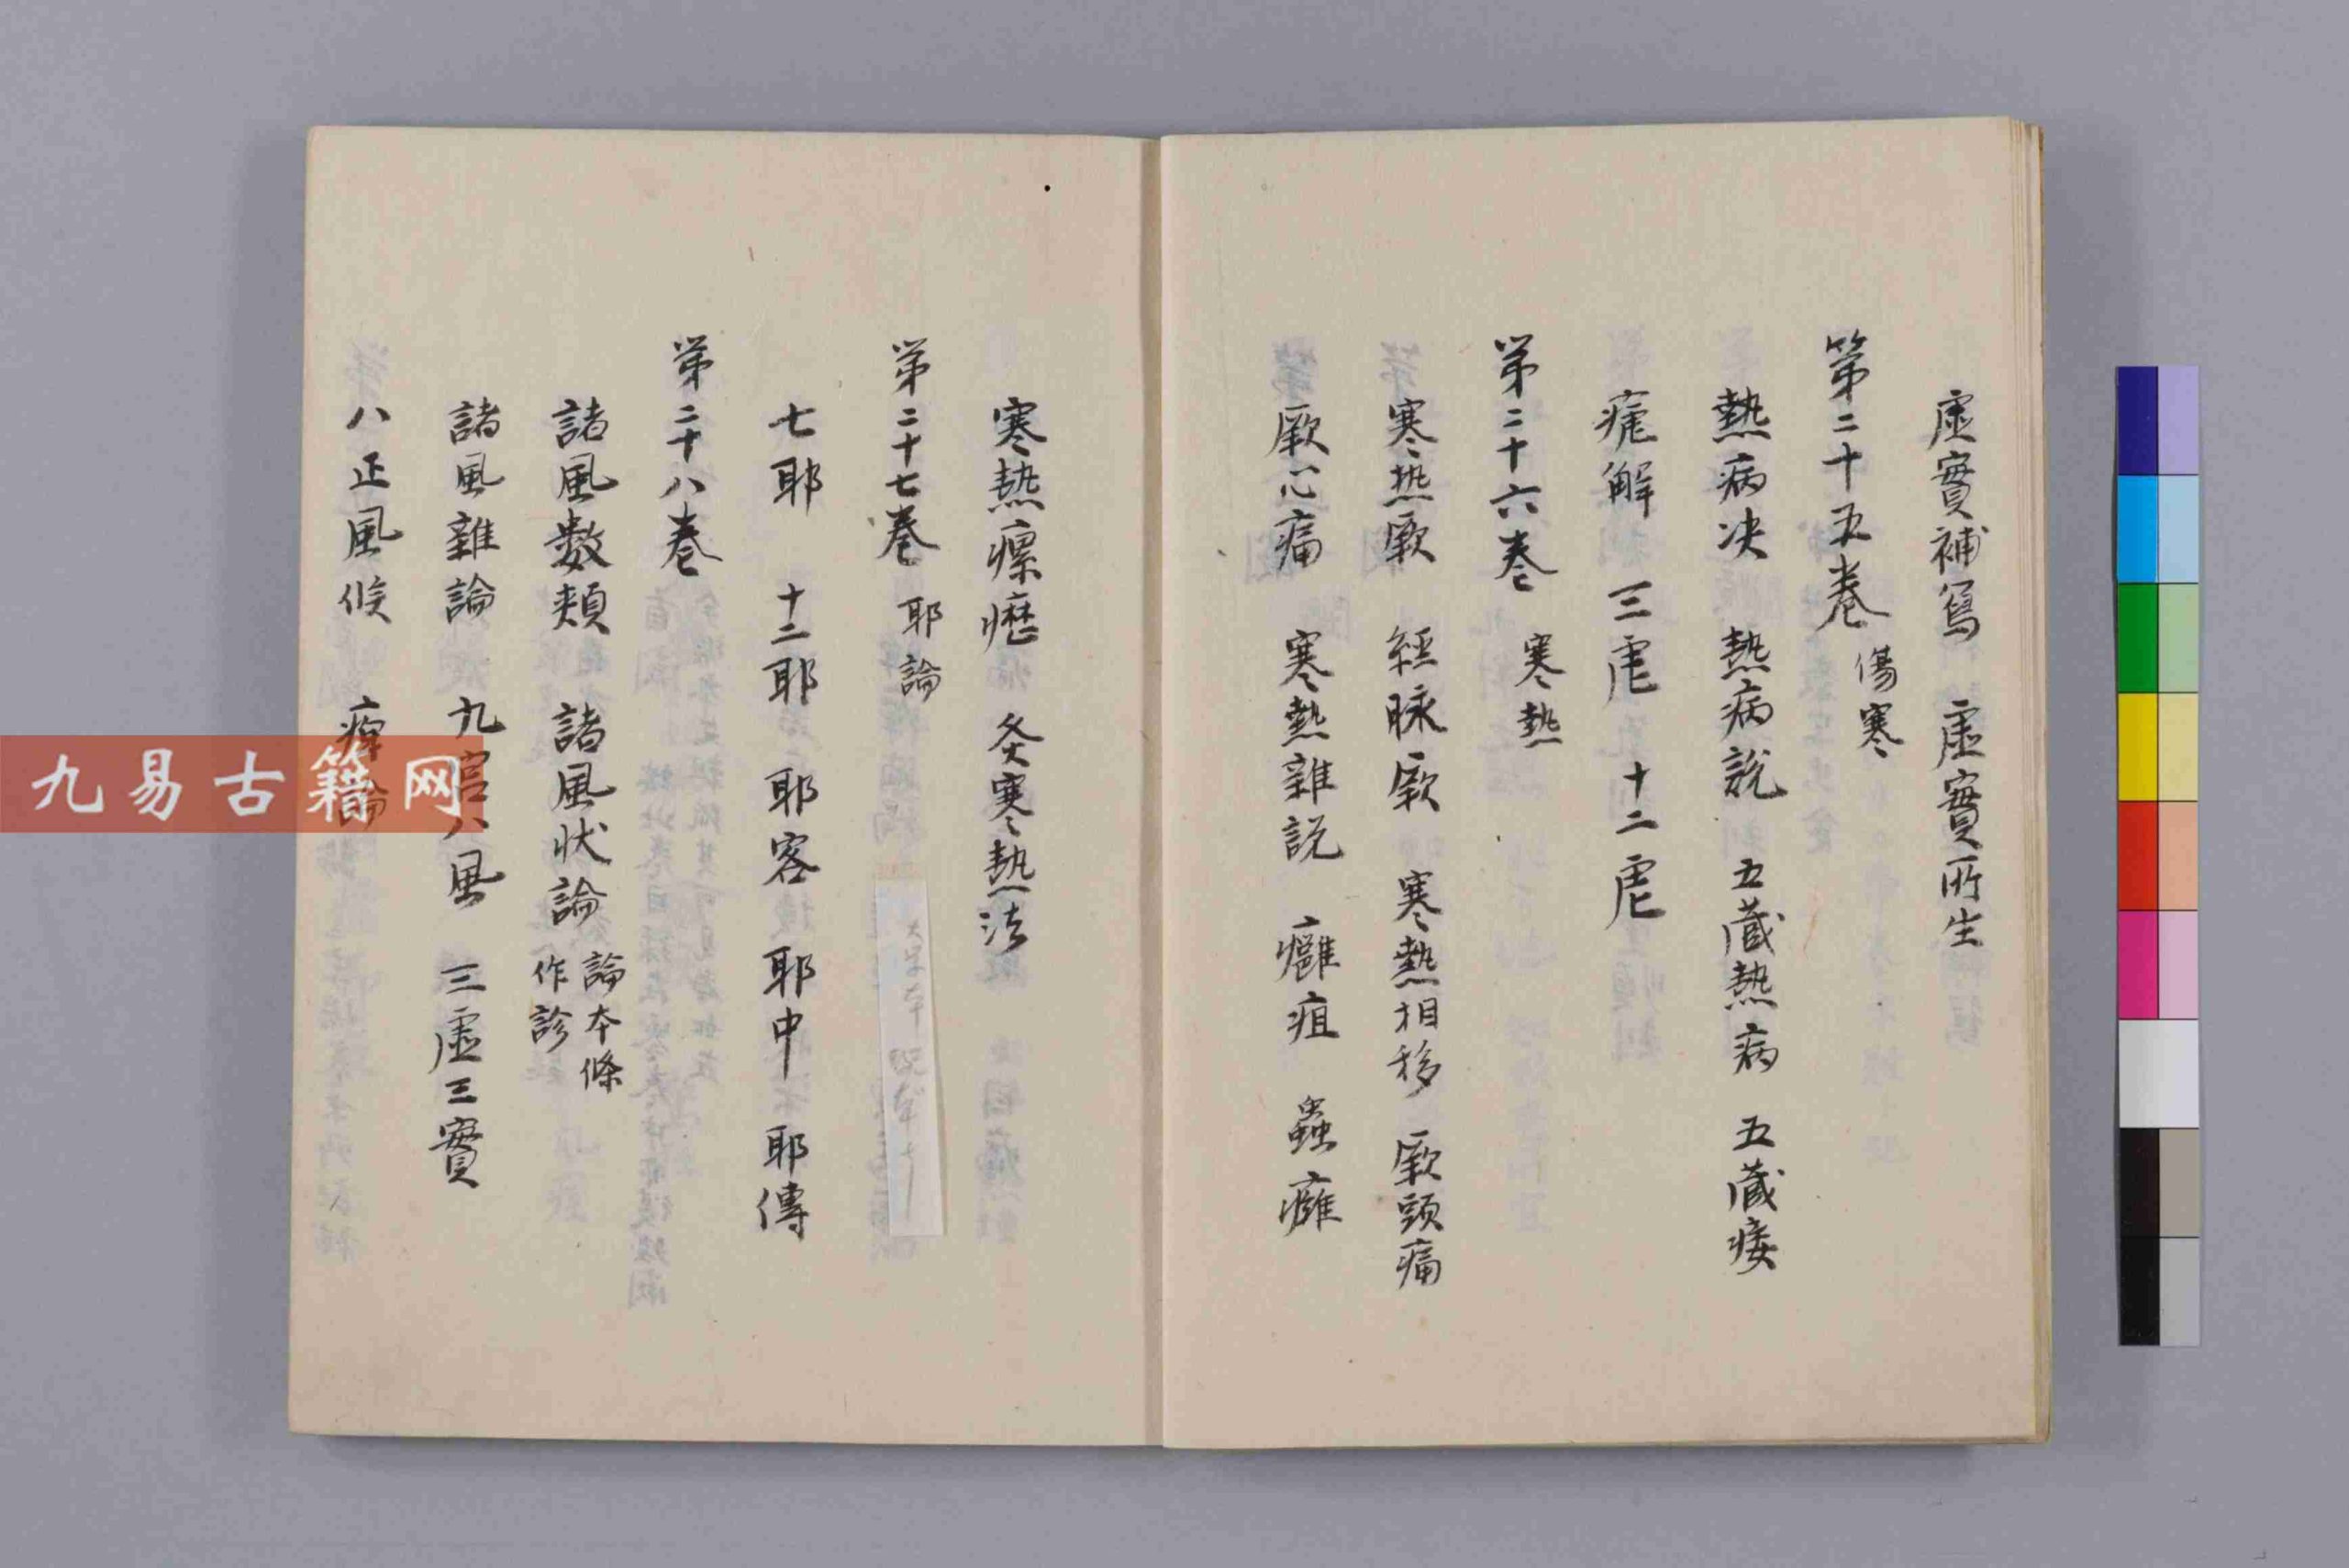 虛實補寫　虛實所生
第二十五卷　傷寒
熱病决　熱病説　五蔵熱病　五蔵痿
瘧解　三瘧　十二瘧
第二十六卷　寒熱
寒热厥　經脉厥　寒熱相移　厥頭痛
厥心痛　寒熱雜説　癰疽　蟲癰
寒熱瘰癧　灸寒熱法
第二十七卷　耶論
七耶　十二耶　耶客　耶中　耶傳
第二十八卷
諸風數類　諸風状論　論本條作診
諸風雜論　九宮八風　三虛三實
八正風候　痺論
九易古籍网